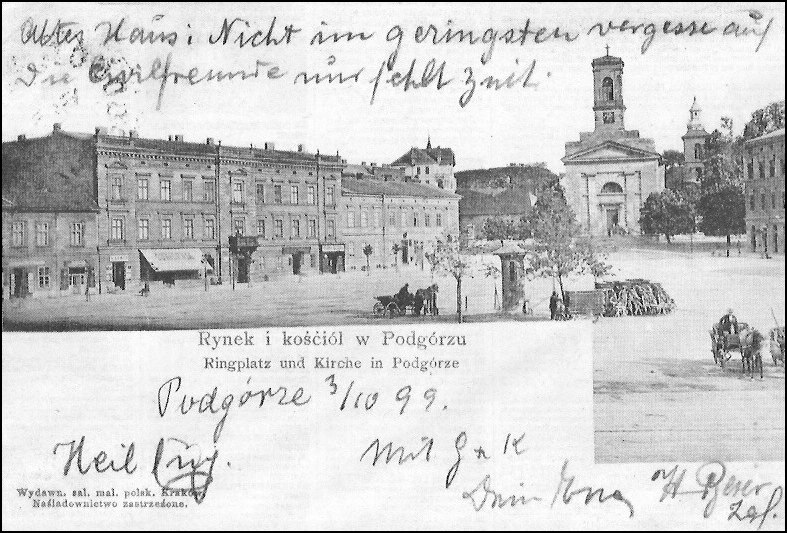 Altes Haus! Nicht im geringsten vergesse auf
Die Civilfreunde nur fehlt Zeit.
Rynek i kośćiół w Podgórzu
Ringplatz und Kirche in Podgórze
Podgórze 3/10 99.
Heil
Mit G + K
Dein
Wydawn. sal. mal. polsk. Kraków.
Naśladownictwo zastrzeżone.